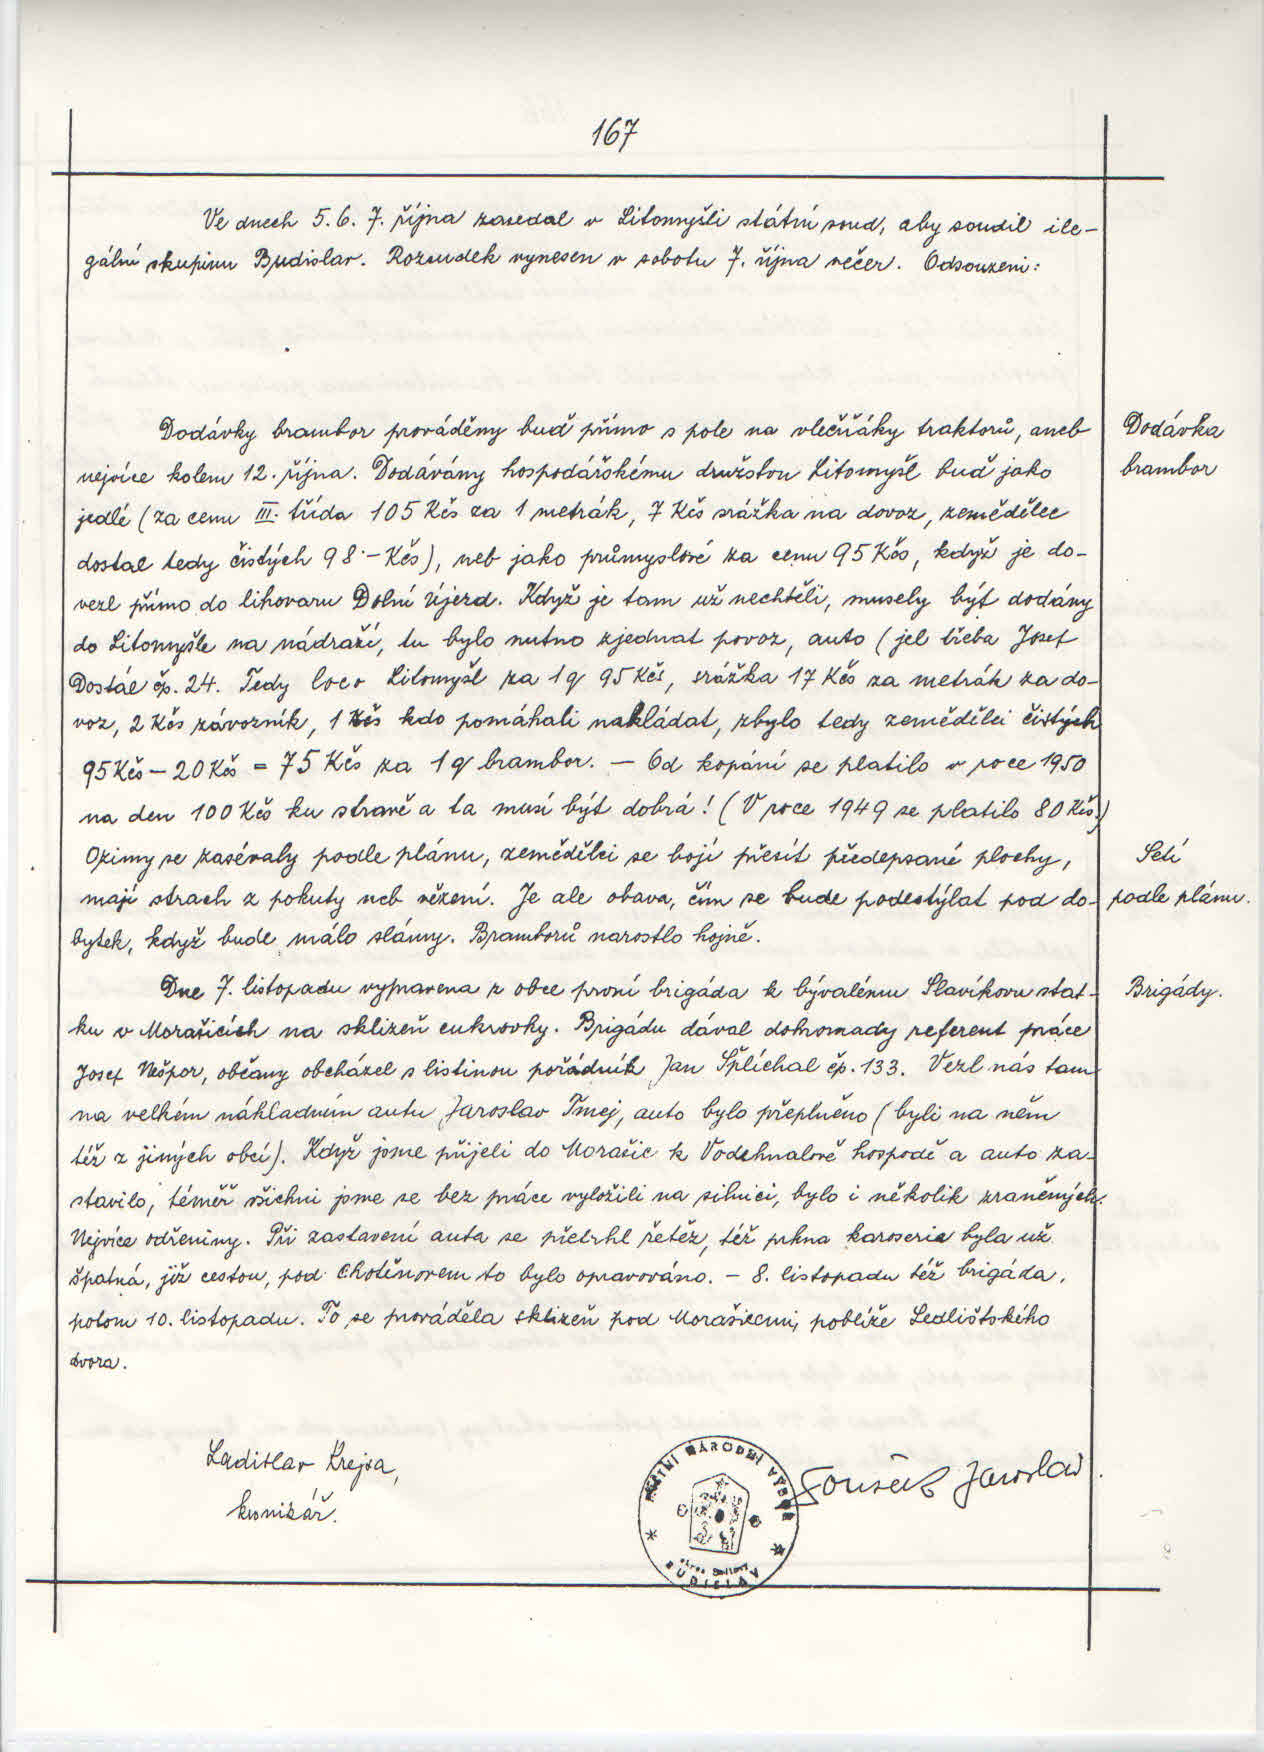 167
Ve dnech 5. 6. 7. října zasedal v Litomyšli státní soud, aby soudil ile-
gální skupinu Budislav. Rozsudek vynesen v sobotu 7. října večer. Odsouzeni:
Dodávky brambor prováděny buď přímo s pole na vlečňáky traktorů, aneb
Dodávka
nejvíce kolem 12. října. Dodávány hospodářskému družstvu Litomyšl buď jako
brambor
jedlé (za cenu III. třída 105 Kčs za 1 metrák, 7 Kčs srážka na dovoz, zemědělec
dostal tedy čistých 98.- Kčs), neb jako průmyslové za cenu 95 Kčs, když je do-
vezl přímo do lihovaru Dolní Újezd. Když je tam už nechtěli, musely být dodány
do Litomyšle na nádraží, tu bylo nutno zjednat povoz, auto (jel třeba Josef
Dostál čp. 24. Tedy loco Litomyšl za 1 q 95 Kčs, srážka 17 Kčs za metrák za do-
voz, 2 Kčs závozník, 1 Kčs kdo pomáhali nakládat, zbylo tedy zemědělci čistých
95 Kčs - 20 Kčs = 75 Kčs za 1 q brambor. - Od kopání se platilo v roce 1950
na den 100 Kčs ku stravě a ta musí být dobrá! (V roce 1949 se platilo 80 Kčs.)
Ozimy se zasévaly podle plánu, zemědělci se bojí přesít předepsané plochy,
Setí
mají strach z pokuty neb vězení. Je ale obava, čím se bude podestýlat pod do-
podle plánu.
bytek, když bude málo slámy. Bramborů narostlo hojně.
Dne 7. listopadu vypravena z obce první brigáda k bývalému Slavíkovu stat-
Brigády.
ku v Morašicích na sklizeň cukrovky. Brigádu dával dohromady referent práce
Josef Nešpor, občany obcházel s listinou pořádník Jan Šplíchal čp. 133. Vezl nás tam
na velkém nákladním autu Jaroslav Tmej, auto bylo přeplněno (byli na něm
též z jiných obcí). Když jsme přijeli do Morašic k Vodehnalově hospodě a auto za-
stavilo, téměř všichni jsme se bez práce vyložili na silnici, bylo i několik zraněných.
Nejvíce odřeniny. Při zastavení auta se přetrhl řetěz, též prkna karoserie byla už
špatná, již cestou, pod Chotěnovem to bylo opravováno. - 8. listopadu též brigáda,
potom 10. listopadu. To se prováděla sklizeň pod Morašicemi, poblíže Sedlišťského
dvora.
Ladislav Krejsa,
kronikář.
MÍSTNÍ NÁRODNÍ VÝBOR
BUDISLAV
Jaroslav